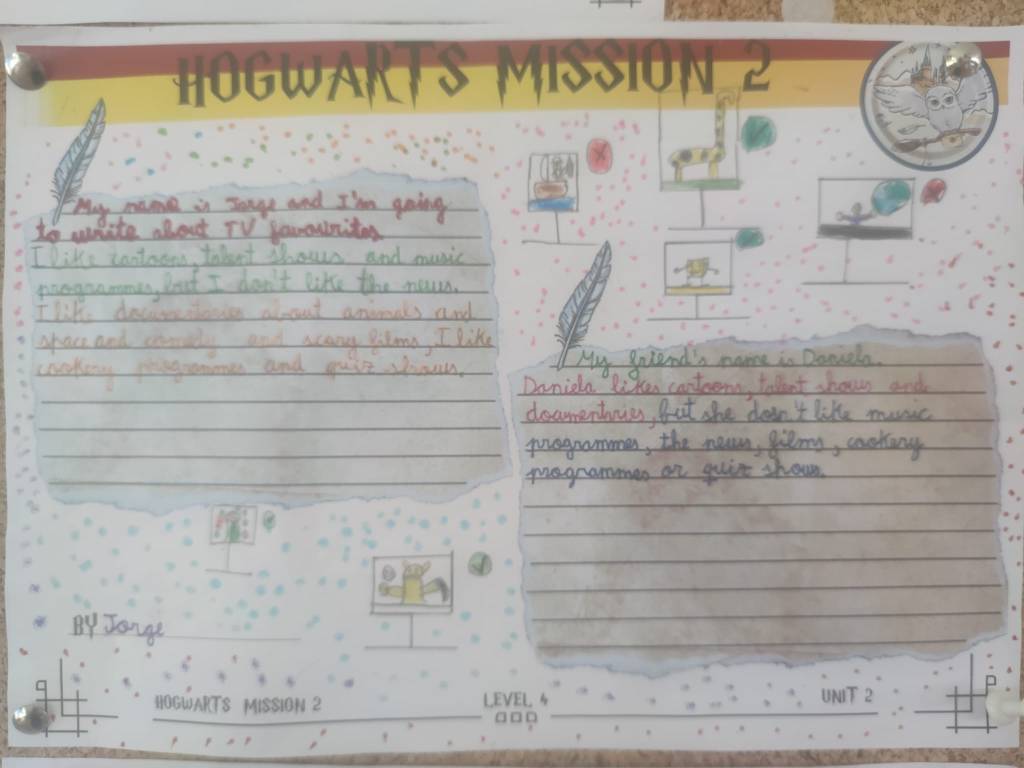 HOGWARTS MISSION 2
My name is Jorge and I'm going
to write about TV favourites.
I like cartoons, talent shows and music
programmes, but I don't like the news.
I like documentaries about animals and
space and comedy and scary films, I like
cookery programmes and quiz shows.
My friend's name is Daniela.
Daniela likes cartoons, talent shows and
documentries, but she dosn't like music
programmes, the news, films, cookery
programmes or quiz shows.
BY Jorge
HOGWARTS MISSION 2
LEVEL 4
UNIT 2